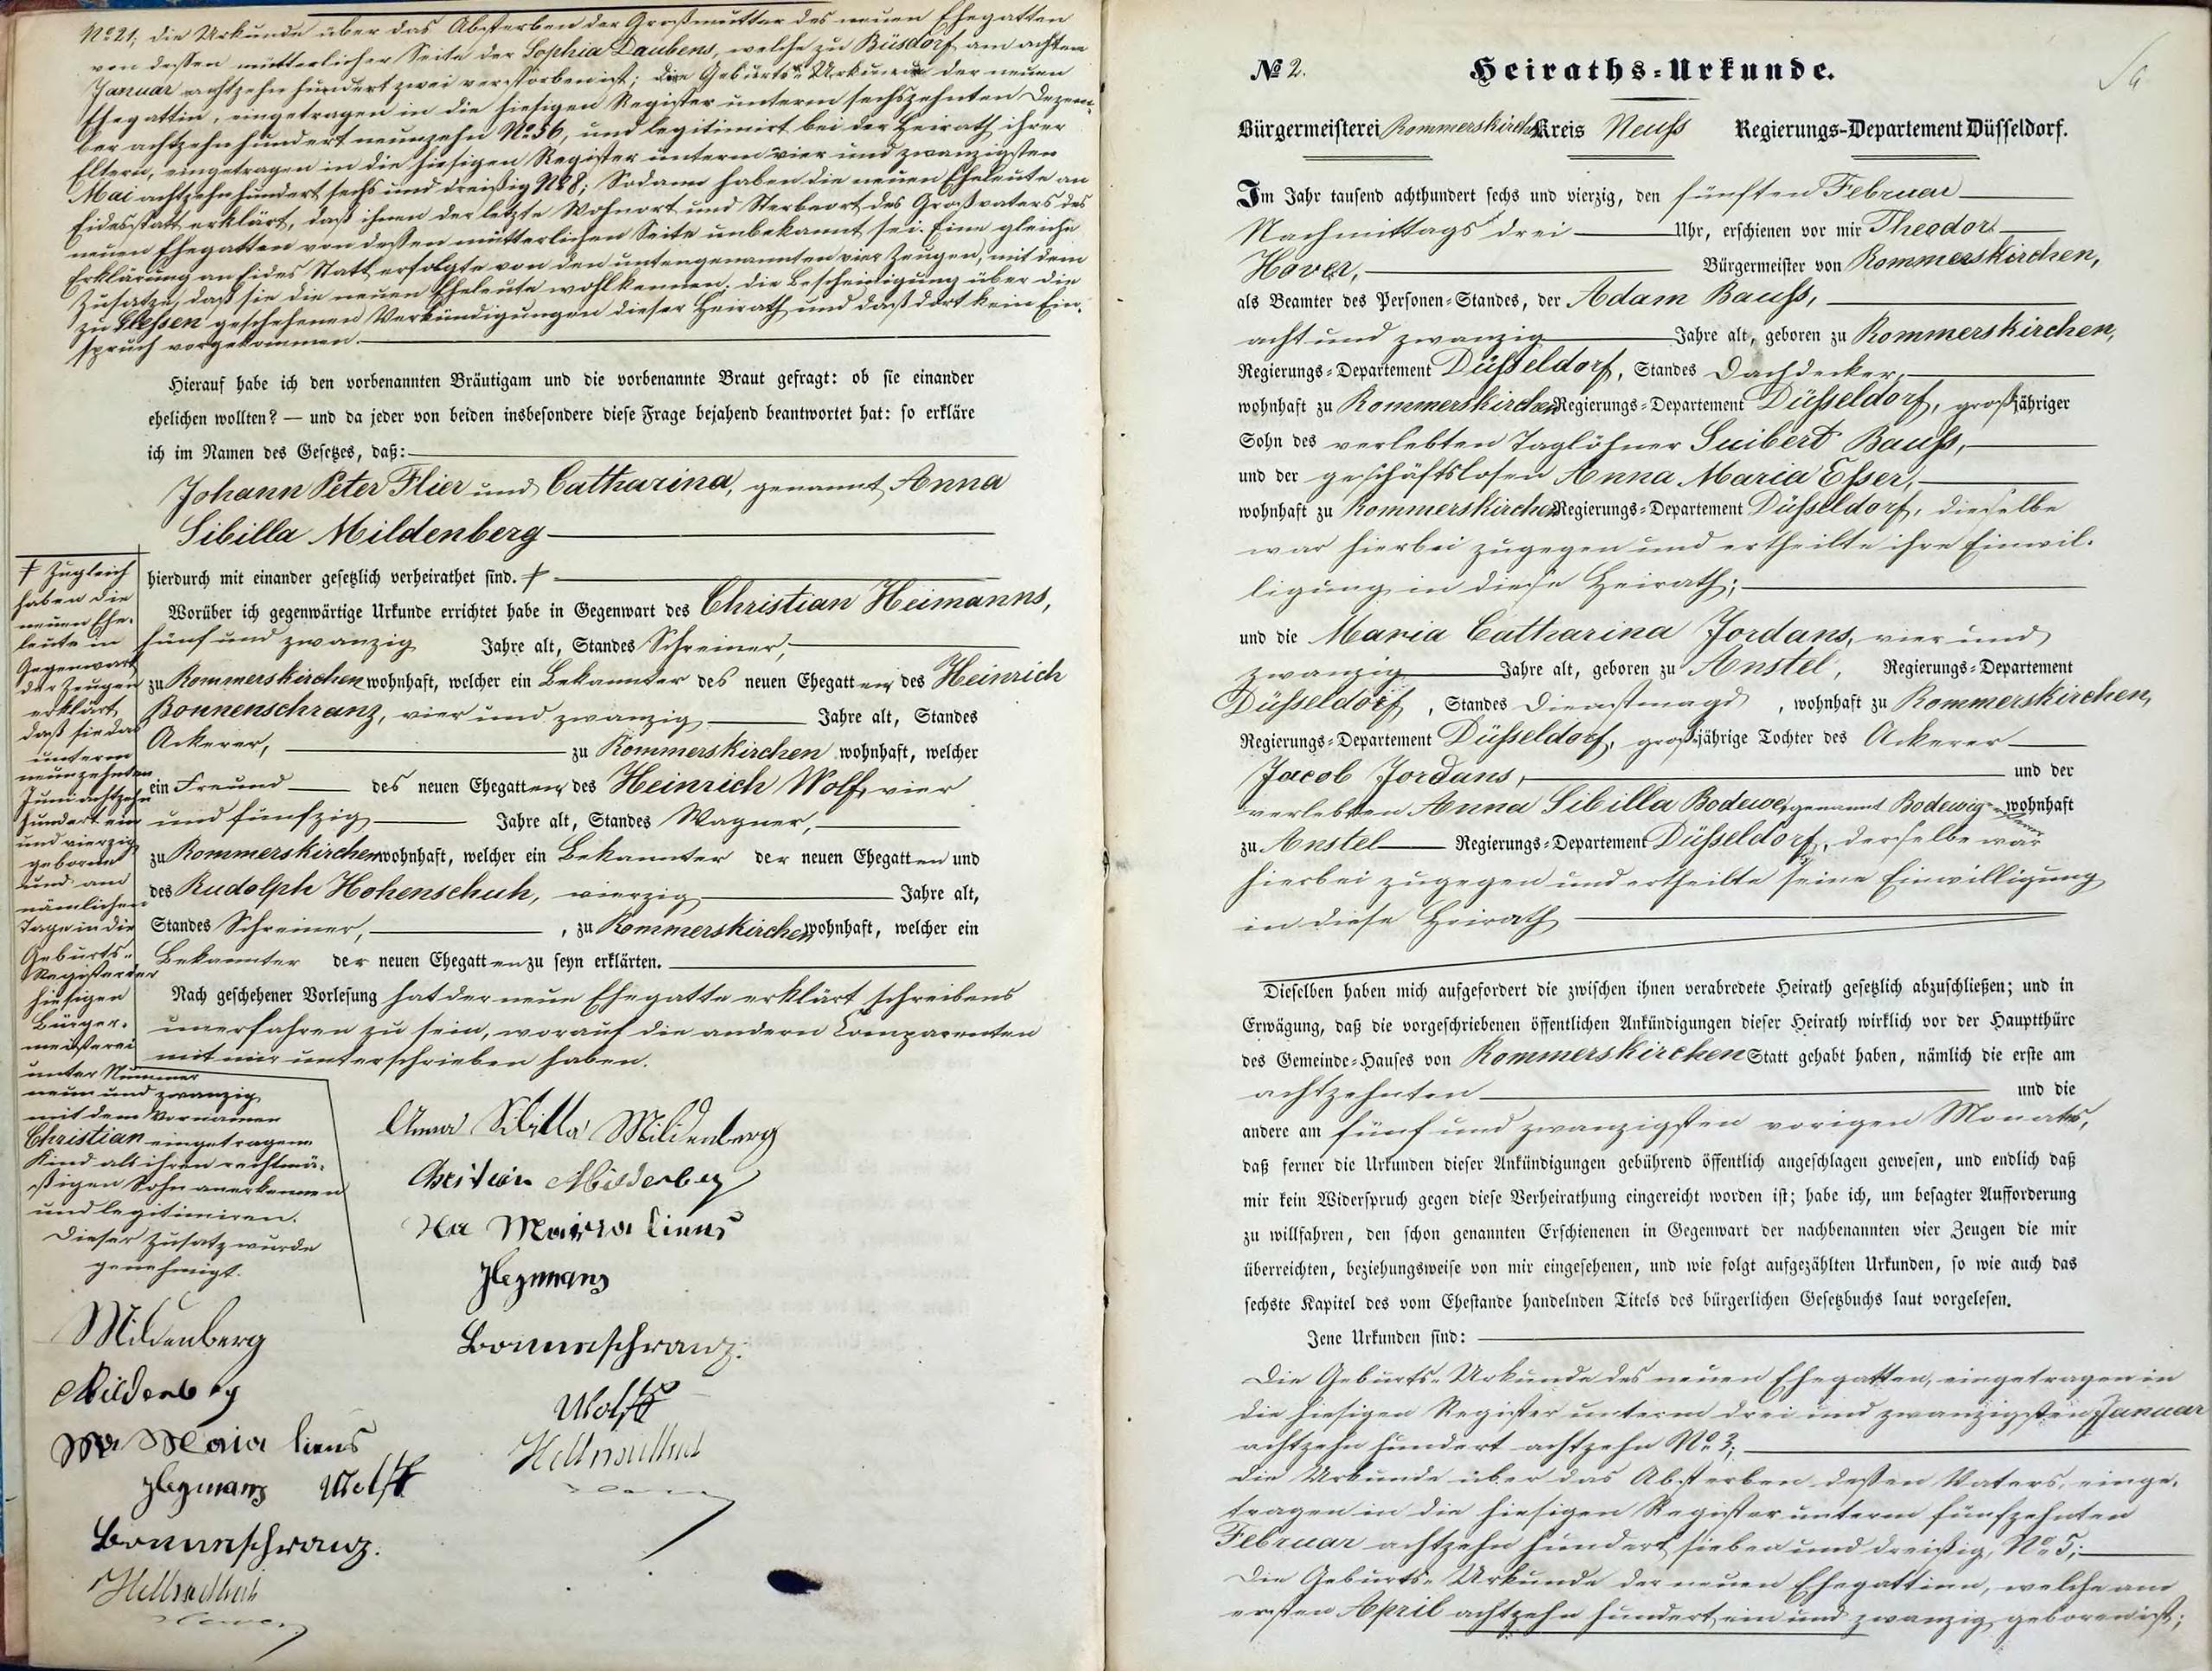 No 21; die Urkunde über das Absterben der Großmutter des neuen Ehegatten
von dessen mütterlicher Seite der Sophia Daubens, welche zu Büsdorf am achten
Januar achtzehnhundert zwei verstorben ist; die Geburts-Urkunde der neuen
Ehegattin, eingetragen in die hiesigen Register unterm sechszehnten Dezem-
ber achtzehnhundert neunzehn No 56, und legitimirt bei der Heirath ihrer
Eltern, eingetragen in die hiesigen Register unterm vier und zwanzigsten
Mai achtzehnhundert sechs und dreißig No 8; Sodann haben die neuen Eheleute an
Eidesstatt erklärt, daß ihnen der letzte Wohnort und Sterbeort des Großvaters des
neuen Ehegatten von dessen mütterlichen Seite unbekannt sei. Eine gleiche
Erklärung an Eides Statt erfolgte von den untengenannten vier Zeugen, mit dem
Zusatze, daß sie die neuen Eheleute wohlkennen; die Bescheinigung über die
zu Glessen geschehenen Verkündigungen dieser Heirath und daß dort kein Ein-
spruch vorgekommen.
Hierauf habe ich den vorbenannten Bräutigam und die vorbenannte Braut gefragt: ob sie einander
ehelichen wollten? — und da jeder von beiden insbesondere diese Frage bejahend beantwortet hat: so erkläre
ich im Namen des Gesetzes, daß:
Johann Peter Flier und Catharina, genannt Anna
Sibilla Mildenberg
hierdurch mit einander gesetzlich verheirathet sind. ⨍
Worüber ich gegenwärtige Urkunde errichtet habe in Gegenwart des Christian Heimanns,
fünf und zwanzig Jahre alt, Standes Schreiner,
zu Rommerskirchen wohnhaft, welcher ein Bekannter des neuen Ehegatten des Heinrich
Bonnenschranz, vier und zwanzig Jahre alt, Standes
Ackerer, zu Rommerskirchen wohnhaft, welcher
ein Freund des neuen Ehegatten des Heinrich Wolf, vier
und fünfzig Jahre alt, Standes Wagner,
zu Rommerskirchen wohnhaft, welcher ein Bekannter der neuen Ehegatten und
des Rudolph Hohenschuh, vierzig Jahre alt,
Standes Schreiner, , zu Rommerskirchen wohnhaft, welcher ein
Bekannter der neuen Ehegatten zu seyn erklärten.
Nach geschehener Vorlesung hat der neue Ehegatte erklärt schreibens
unerfahren zu sein, worauf die andern Comparenten
mit mir unterschrieben haben.
⨍ Zugleich
haben die
neuen Ehe-
leute in
Gegenwart
der Zeugen
erklärt,
daß sie das
unterm
neunzehnten
Juni achtzehn
hundert ein
und vierzig
geborene
und am
nämlichen
Tage in die
Geburts-
Register der
hiesigen
Bürger-
meisterei
unter Nummer
neun und zwanzig
mit dem Vornamen
Christian eingetragene
Kind als ihren rechtmä-
ßigen Sohn anerkennen
und legitimiren.
Dieser Zusatz wurde
genehmigt.
Anna Sibilla Mildenberg
Christian Mildenberg
Maria liens
Heymans
Bonnenschranz.
Wolff
Mildenberg
Mildenberg
Maria liens
Heymans Wolff
Bonnenschranz.
No 2. Heiraths-Urkunde.
Bürgermeisterei Rommerskirchen Kreis Neuss Regierungs-Departement Düsseldorf.
Im Jahr tausend achthundert sechs und vierzig, den fünften Februar
Nachmittags drei Uhr, erschienen vor mir Theodor
Hover, Bürgermeister von Rommerskirchen,
als Beamter des Personen-Standes, der Adam Bauss,
acht und zwanzig Jahre alt, geboren zu Rommerskirchen,
Regierungs-Departement Düsseldorf, Standes Dachdecker,
wohnhaft zu Rommerskirchen Regierungs-Departement Düsseldorf, großjähriger
Sohn des verlebten Taglöhner Suibert Bauss,
und der geschäftslosen Anna Maria Esser,
wohnhaft zu Rommerskirchen Regierungs-Departement Düsseldorf, dieselbe
war hierbei zugegen und ertheilte ihre Einwil-
ligung in diese Heirath;
und die Maria Catharina Jordans, vier und
zwanzig Jahre alt, geboren zu Anstel, Regierungs-Departement
Düsseldorf, Standes Dienstmagd, wohnhaft zu Rommerskirchen,
Regierungs-Departement Düsseldorf, großjährige Tochter des Ackerer
Jacob Jordans, und der
verlebten Anna Sibilla Bodewe, genannt Bodewig wohnhaft
zu Anstel Regierungs-Departement Düsseldorf, derselbe war
hierbei zugegen und ertheilte seine Einwilligung
in diese Heirath
Dieselben haben mich aufgefordert die zwischen ihnen verabredete Heirath gesetzlich abzuschließen; und in
Erwägung, daß die vorgeschriebenen öffentlichen Ankündigungen dieser Heirath wirklich vor der Hauptthüre
des Gemeinde-Hauses von Rommerskirchen Statt gehabt haben, nämlich die erste am
achtzehnten und die
andere am fünf und zwanzigsten vorigen Monats,
daß ferner die Urkunden dieser Ankündigungen gebührend öffentlich angeschlagen gewesen, und endlich daß
mir kein Widerspruch gegen diese Verheirathung eingereicht worden ist; habe ich, um besagter Aufforderung
zu willfahren, den schon genannten Erschienenen in Gegenwart der nachbenannten vier Zeugen die mir
überreichten, beziehungsweise von mir eingesehenen, und wie folgt aufgezählten Urkunden, so wie auch das
sechste Kapitel des vom Ehestande handelnden Titels des bürgerlichen Gesetzbuchs laut vorgelesen.
Jene Urkunden sind:
Die Geburts-Urkunde des neuen Ehegatten, eingetragen in
die hiesigen Register unterm drei und zwanzigsten Januar
achtzehn hundert achtzehn No 3;
die Urkunde über das Absterben dessen Vaters, einge-
tragen in die hiesigen Register unterm fünfzehnten
Februar achtzehn hundert sieben und dreißig, No 5;
Die Geburts-Urkunde der neuen Ehegattinn, welche am
ersten April achtzehn hundert ein und zwanzig geboren ist;